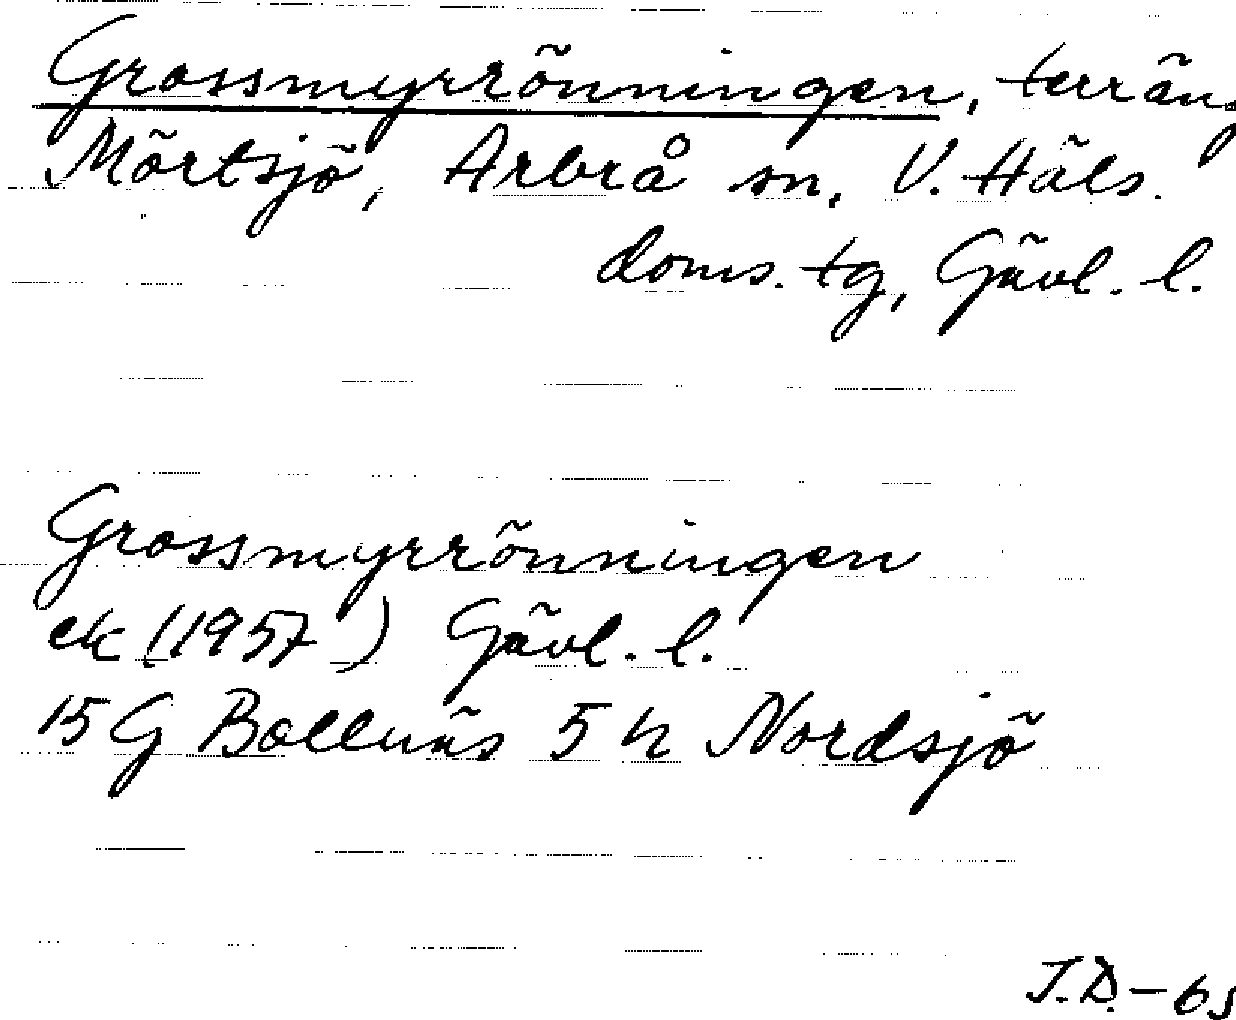 Grossmyrrönningen, terräng
Mörtsjö, Arbrå sn, V. Häls.
doms.tg, Gävl. l.
Grossmyrrönningen
ek (1957) Gävl. l.
15 G Bollnäs 5 h Nordsjö
J.D. -65